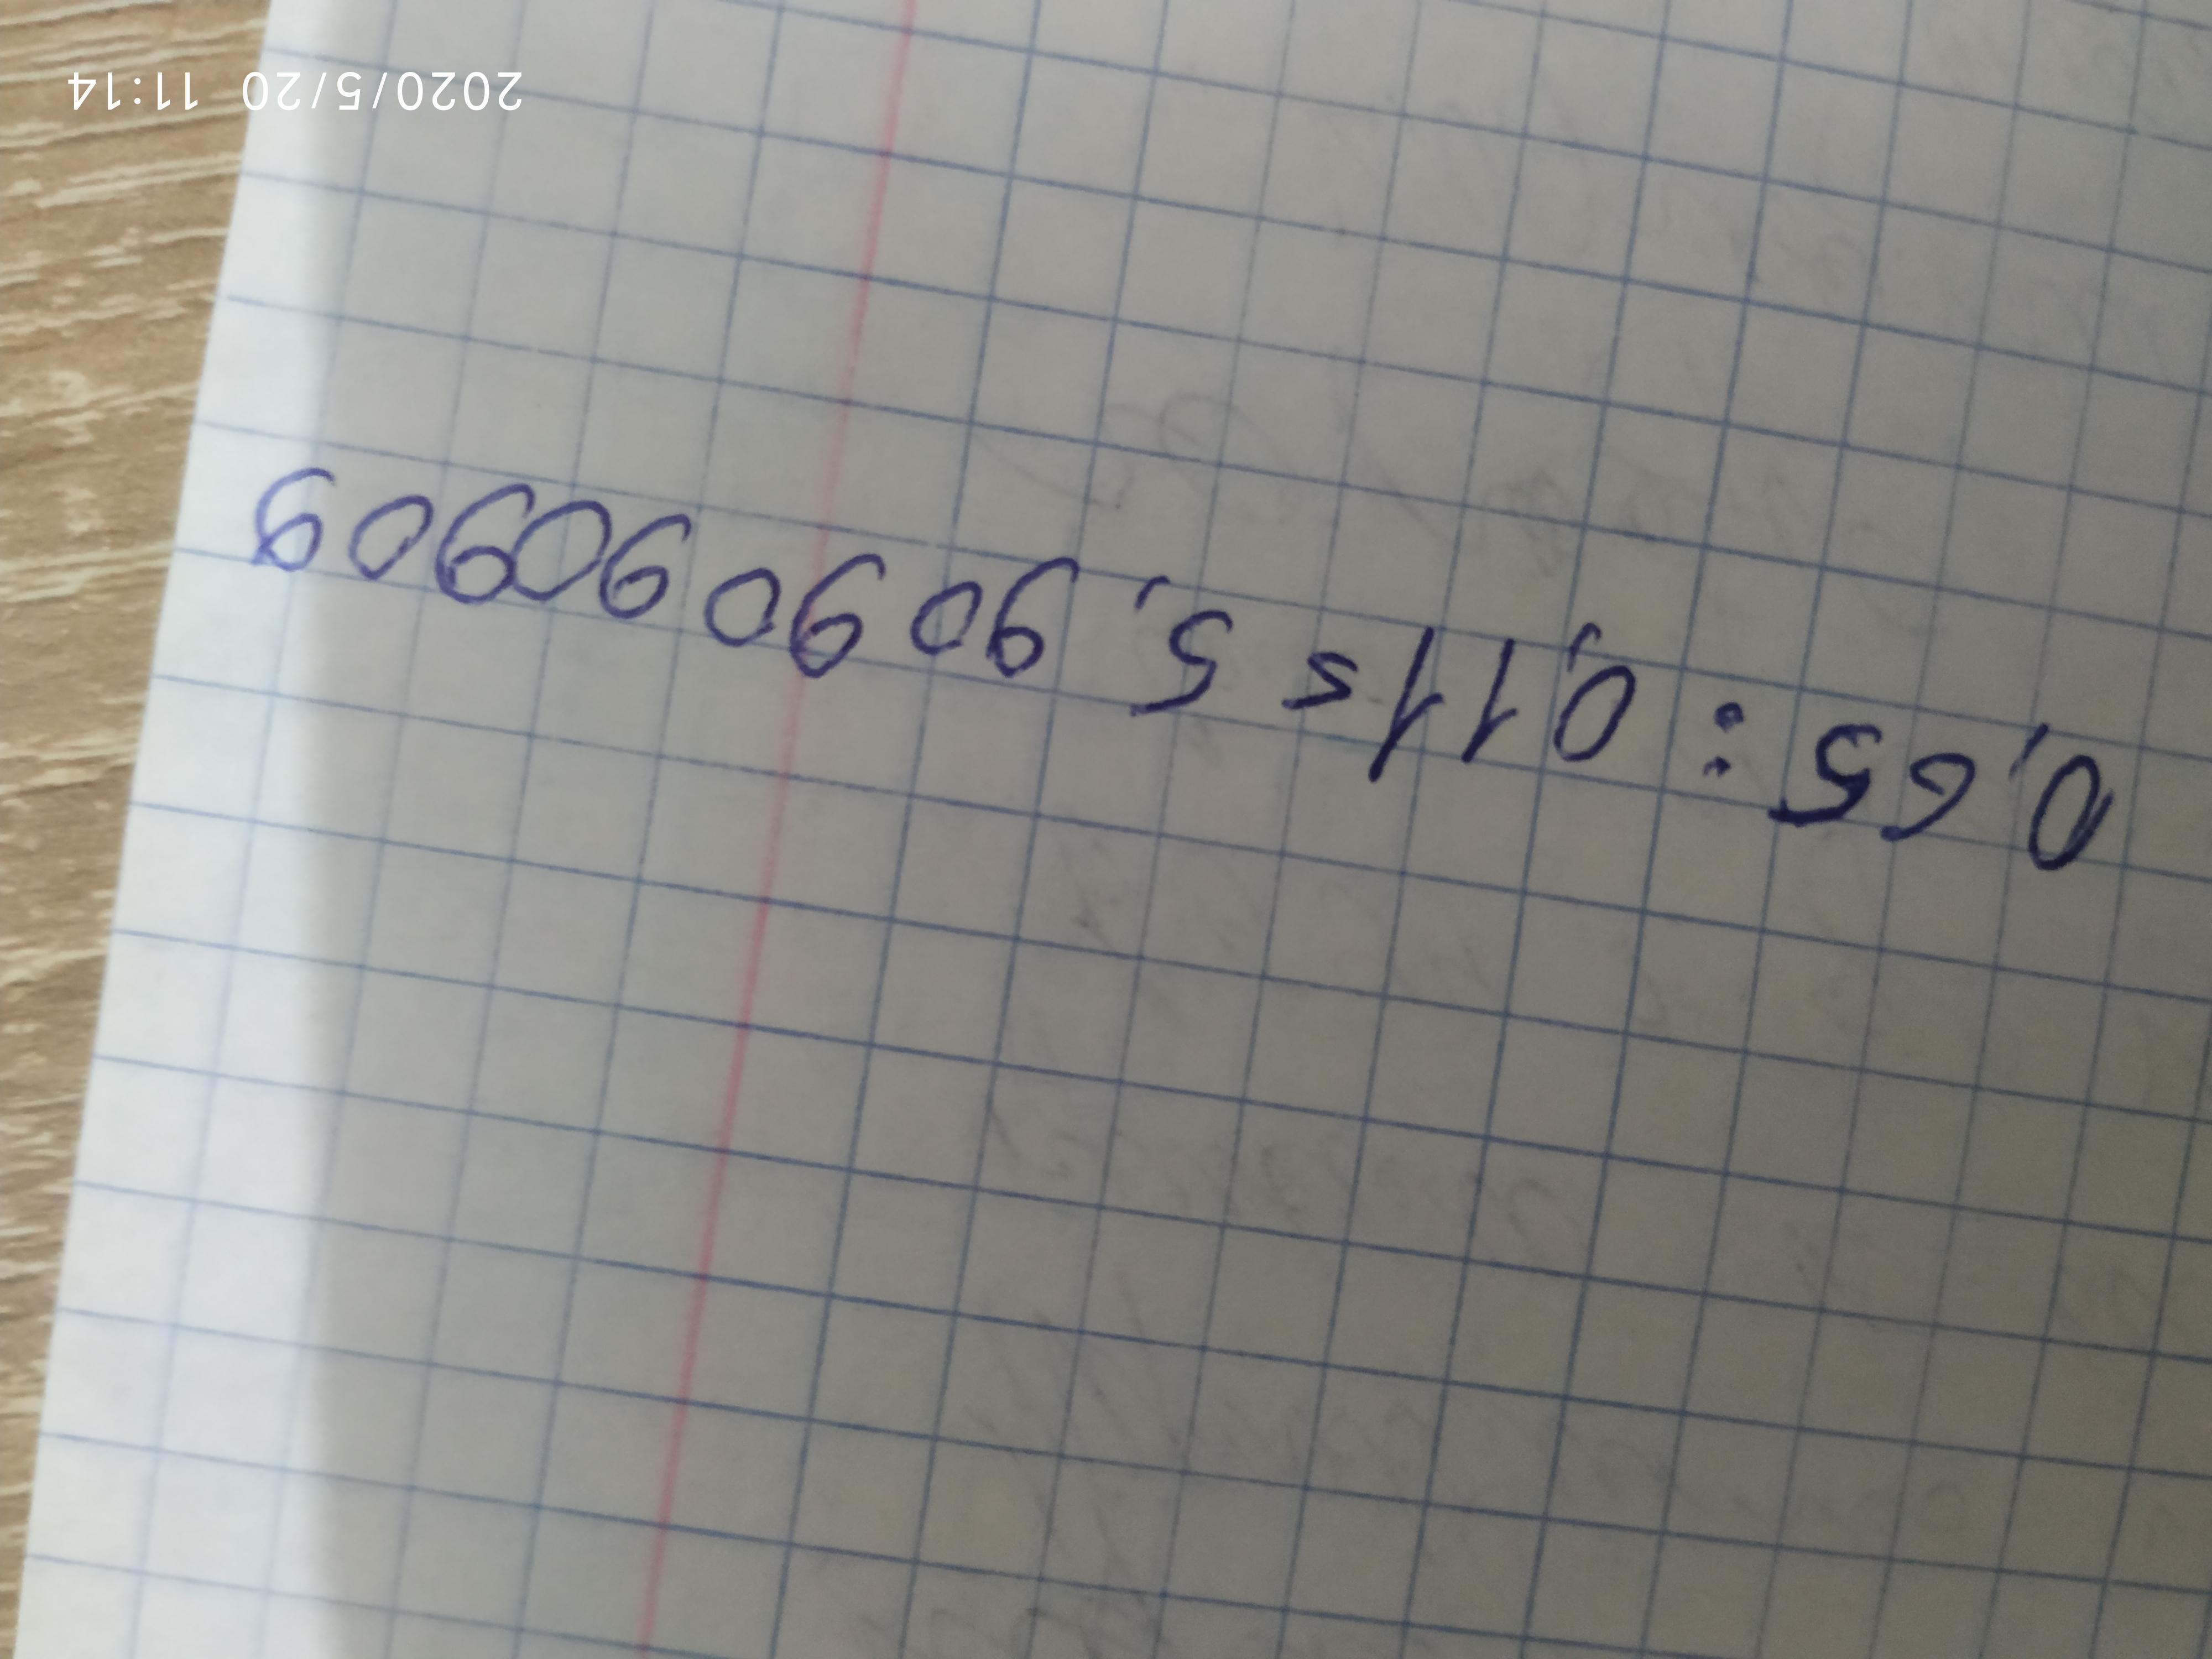 0,65 : 0,11 = 5,909090909
2020/5/20 11:14